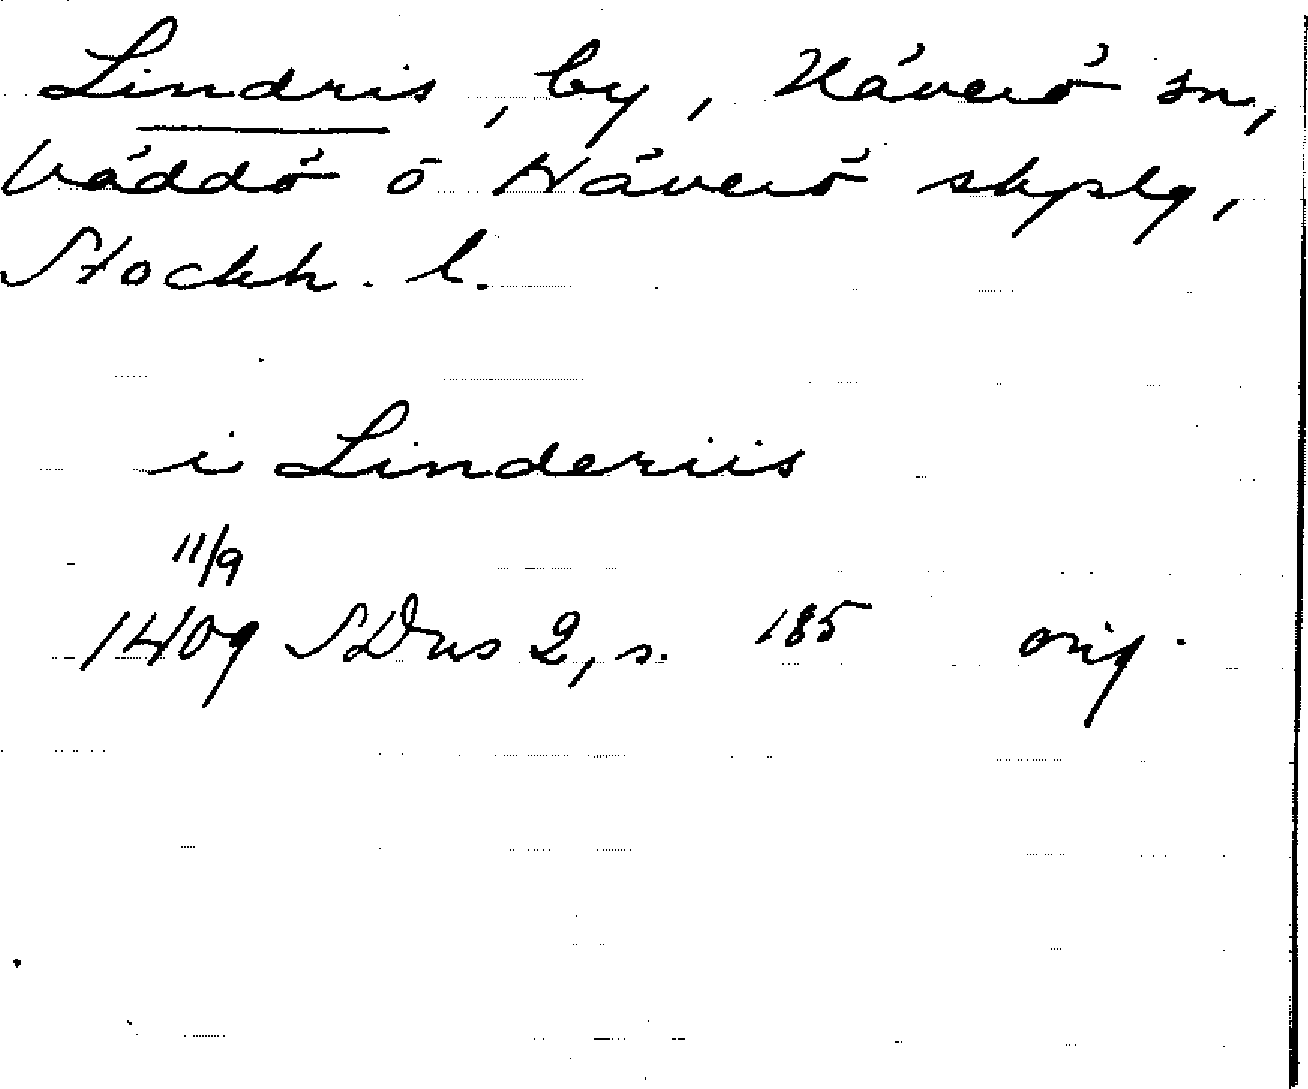 Lindris, by, Häverö sn,
Väddö o Häverö skplg,
Stockh. l.
i Linderiis
11/9
1409 SDns 2, s. 185 orig.